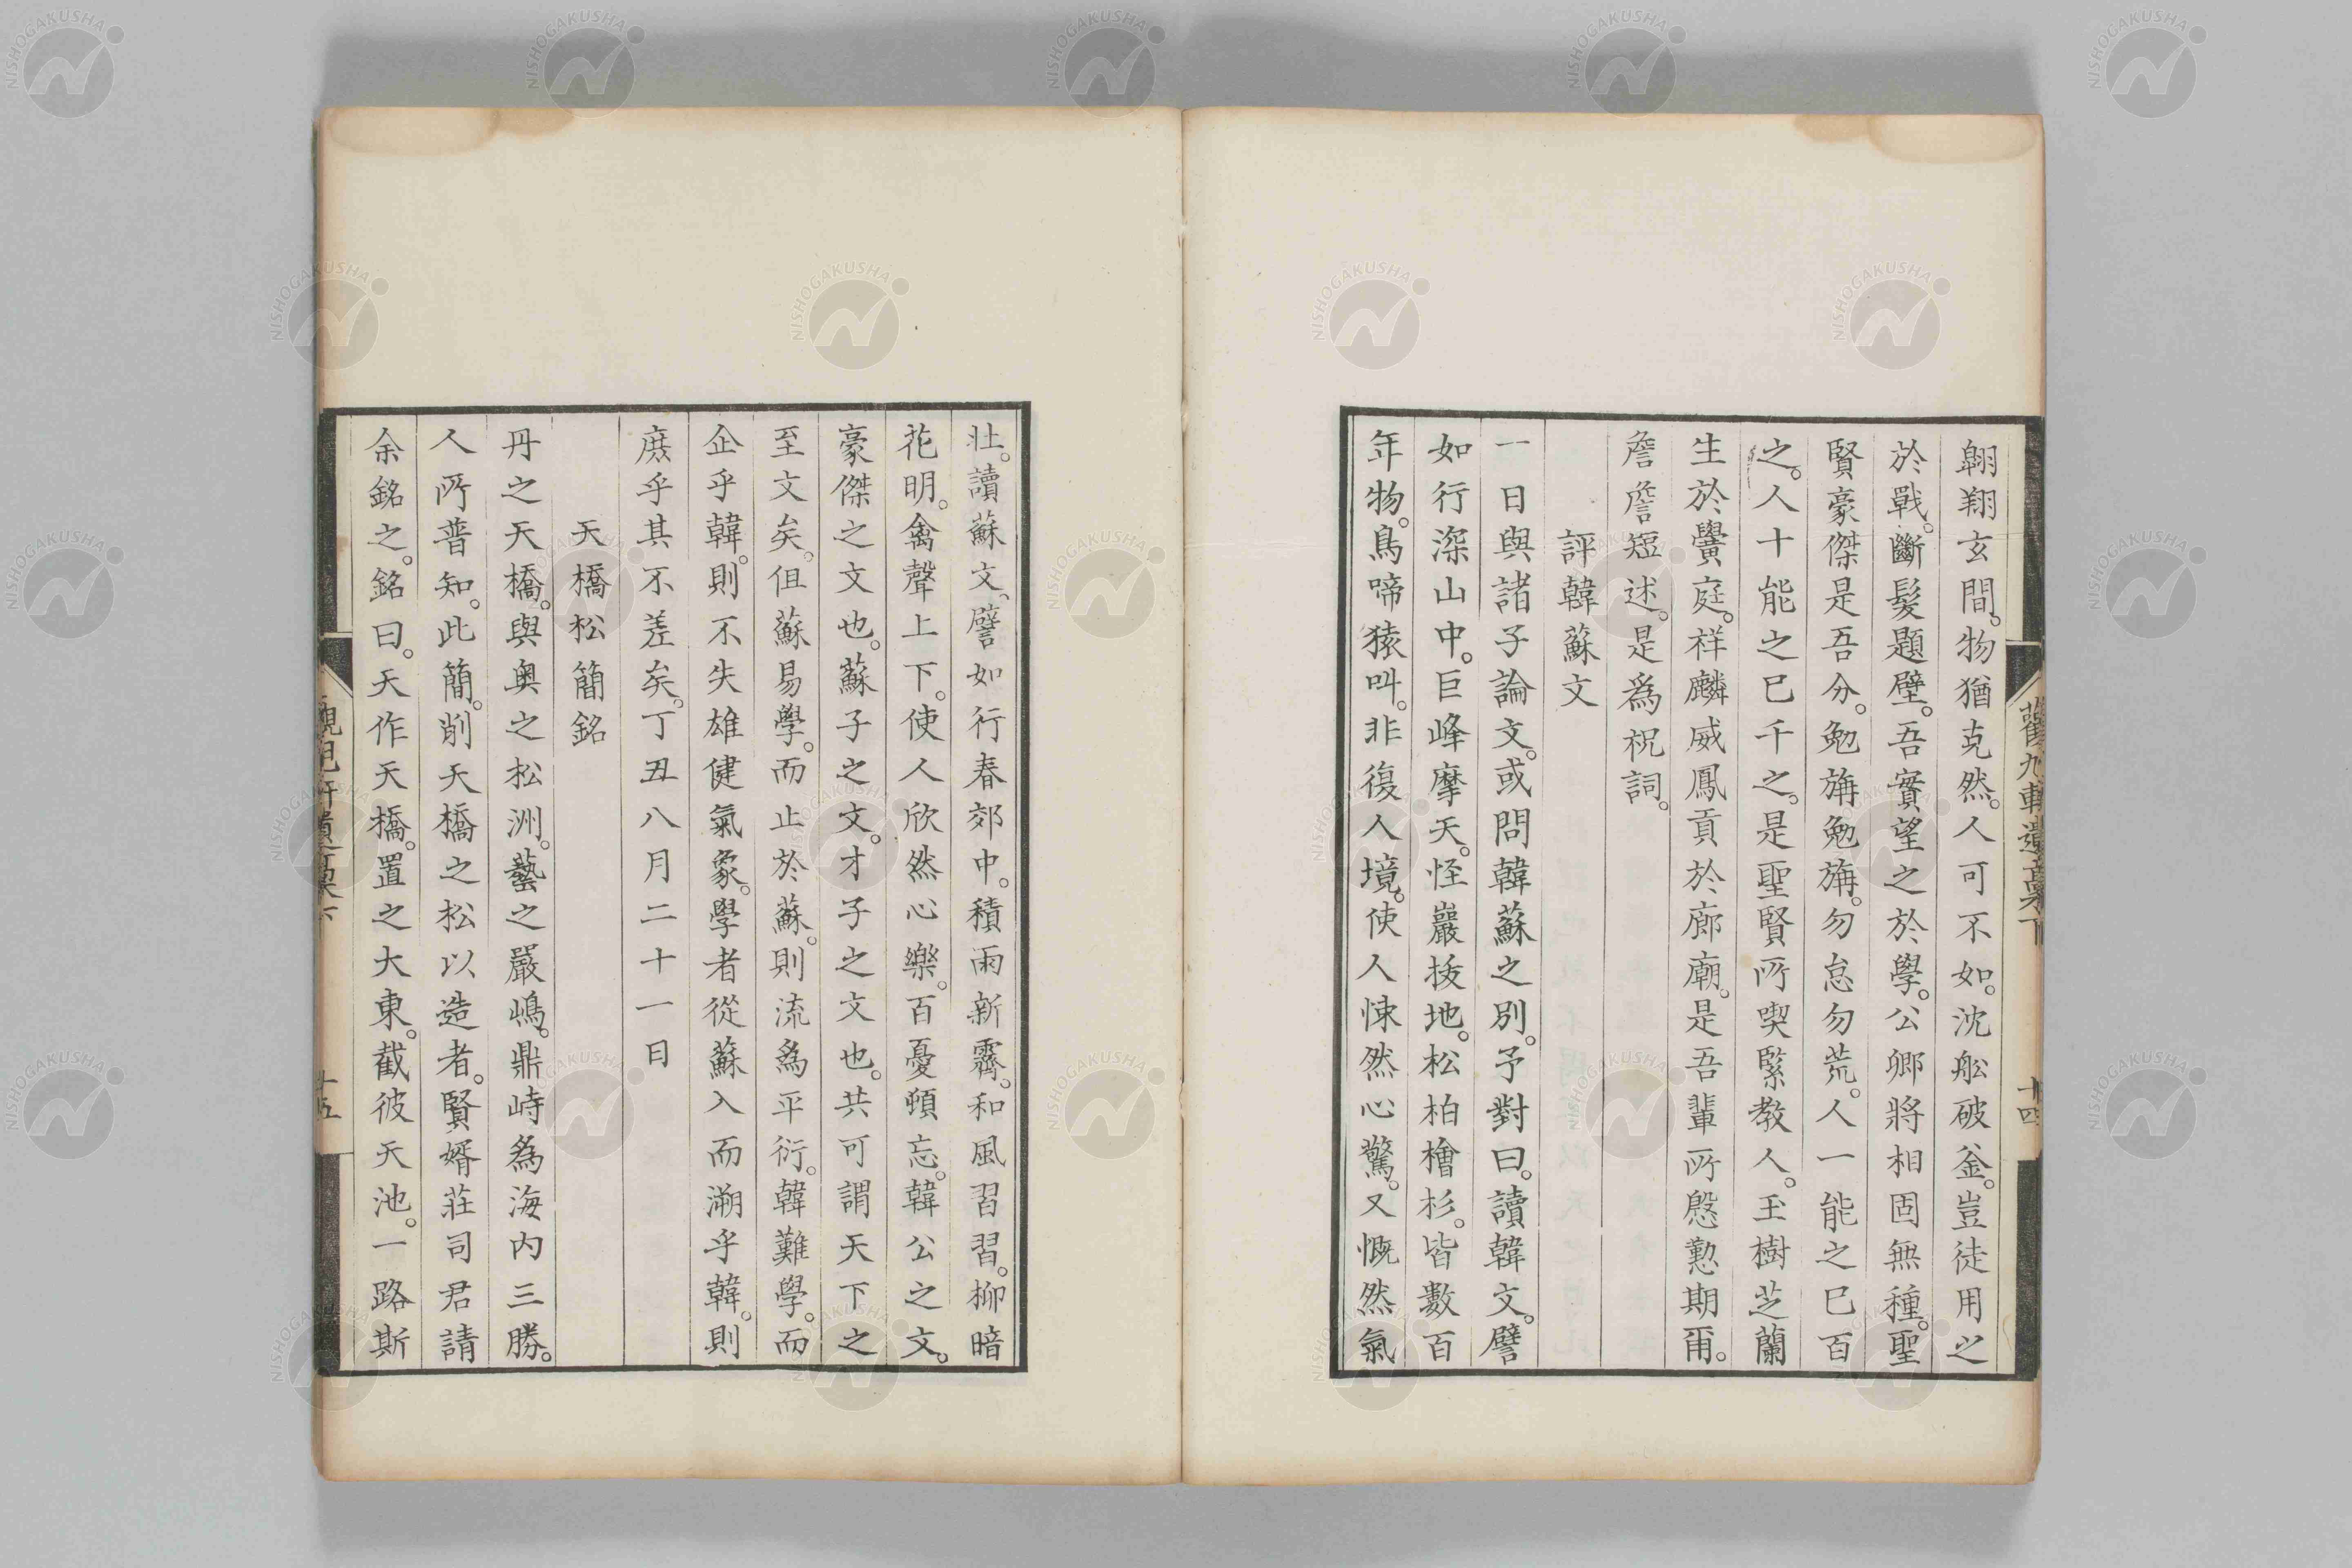 翺翔玄間。物猶克然。人可不如。沈舩破釡。豈徒用之
於戰。斷髮題壁。吾實望之於學。公卿將相固無種。聖
賢豪傑是吾分。勉旃勉旃。勿怠勿荒。人一能之已百
之。人十能之已千之。是聖賢所喫緊教人。玉樹芝蘭
生於黌庭。祥麟威鳳貢於廊廟。是吾輩所慇懃期爾。
詹詹短述。是爲祝詞。
評韓蘇文
一日與諸子論文。或問韓蘇之別。予對曰。讀韓文。譬
如行深山中。巨峰摩天。怪巖拔地。松柏檜杉。皆數百
年物。鳥啼猿叫。非復人境。使人悚然心驚。又慨然氣
舊九軒遺稾下
十四
壯。讀蘇文、譬如行春郊中。積雨新霽。和風習習。柳暗
花明。禽聲上下。使人欣然心樂。百憂頓忘。韓公之文。
豪傑之文也。蘇子之文。才子之文也。共可謂天下之
至文矣。但蘇易學。而止於蘇。則流爲平衍。韓難學。而
企乎韓。則不失雄健氣象。學者從蘇入而溯乎韓。則
庶乎其不差矣。丁丑八月二十一日
天橋松簡銘
丹之天橋。與奧之松洲。藝之嚴嶋。鼎峙爲海内三勝。
人所普知。此簡。削天橋之松以造者。賢婿莊司君請
余銘之。銘曰。天作天橋。置之大東。截彼天池。一路斯
十五
NISHOGAKUSHA